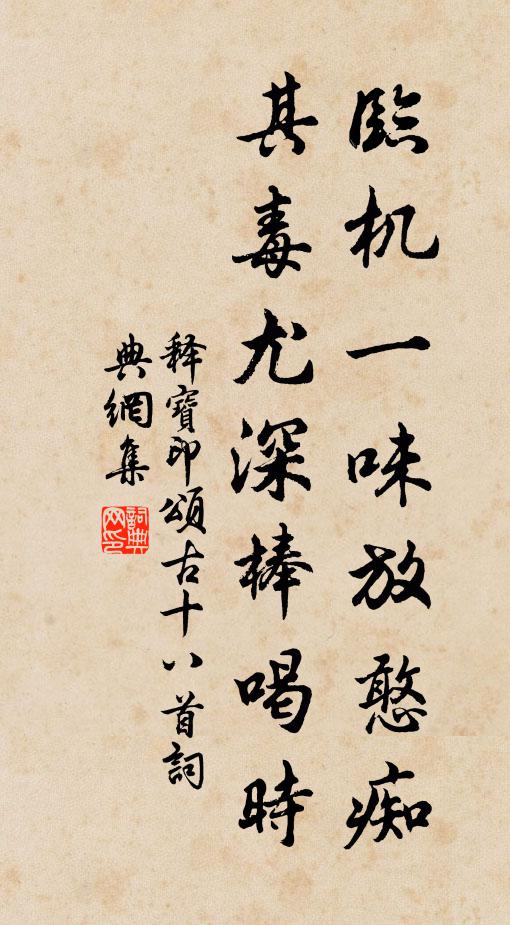 臨机一味放憨痴
其毒尤深棒喝時
释寶印頌古十八首詞
典網集
詞典网印